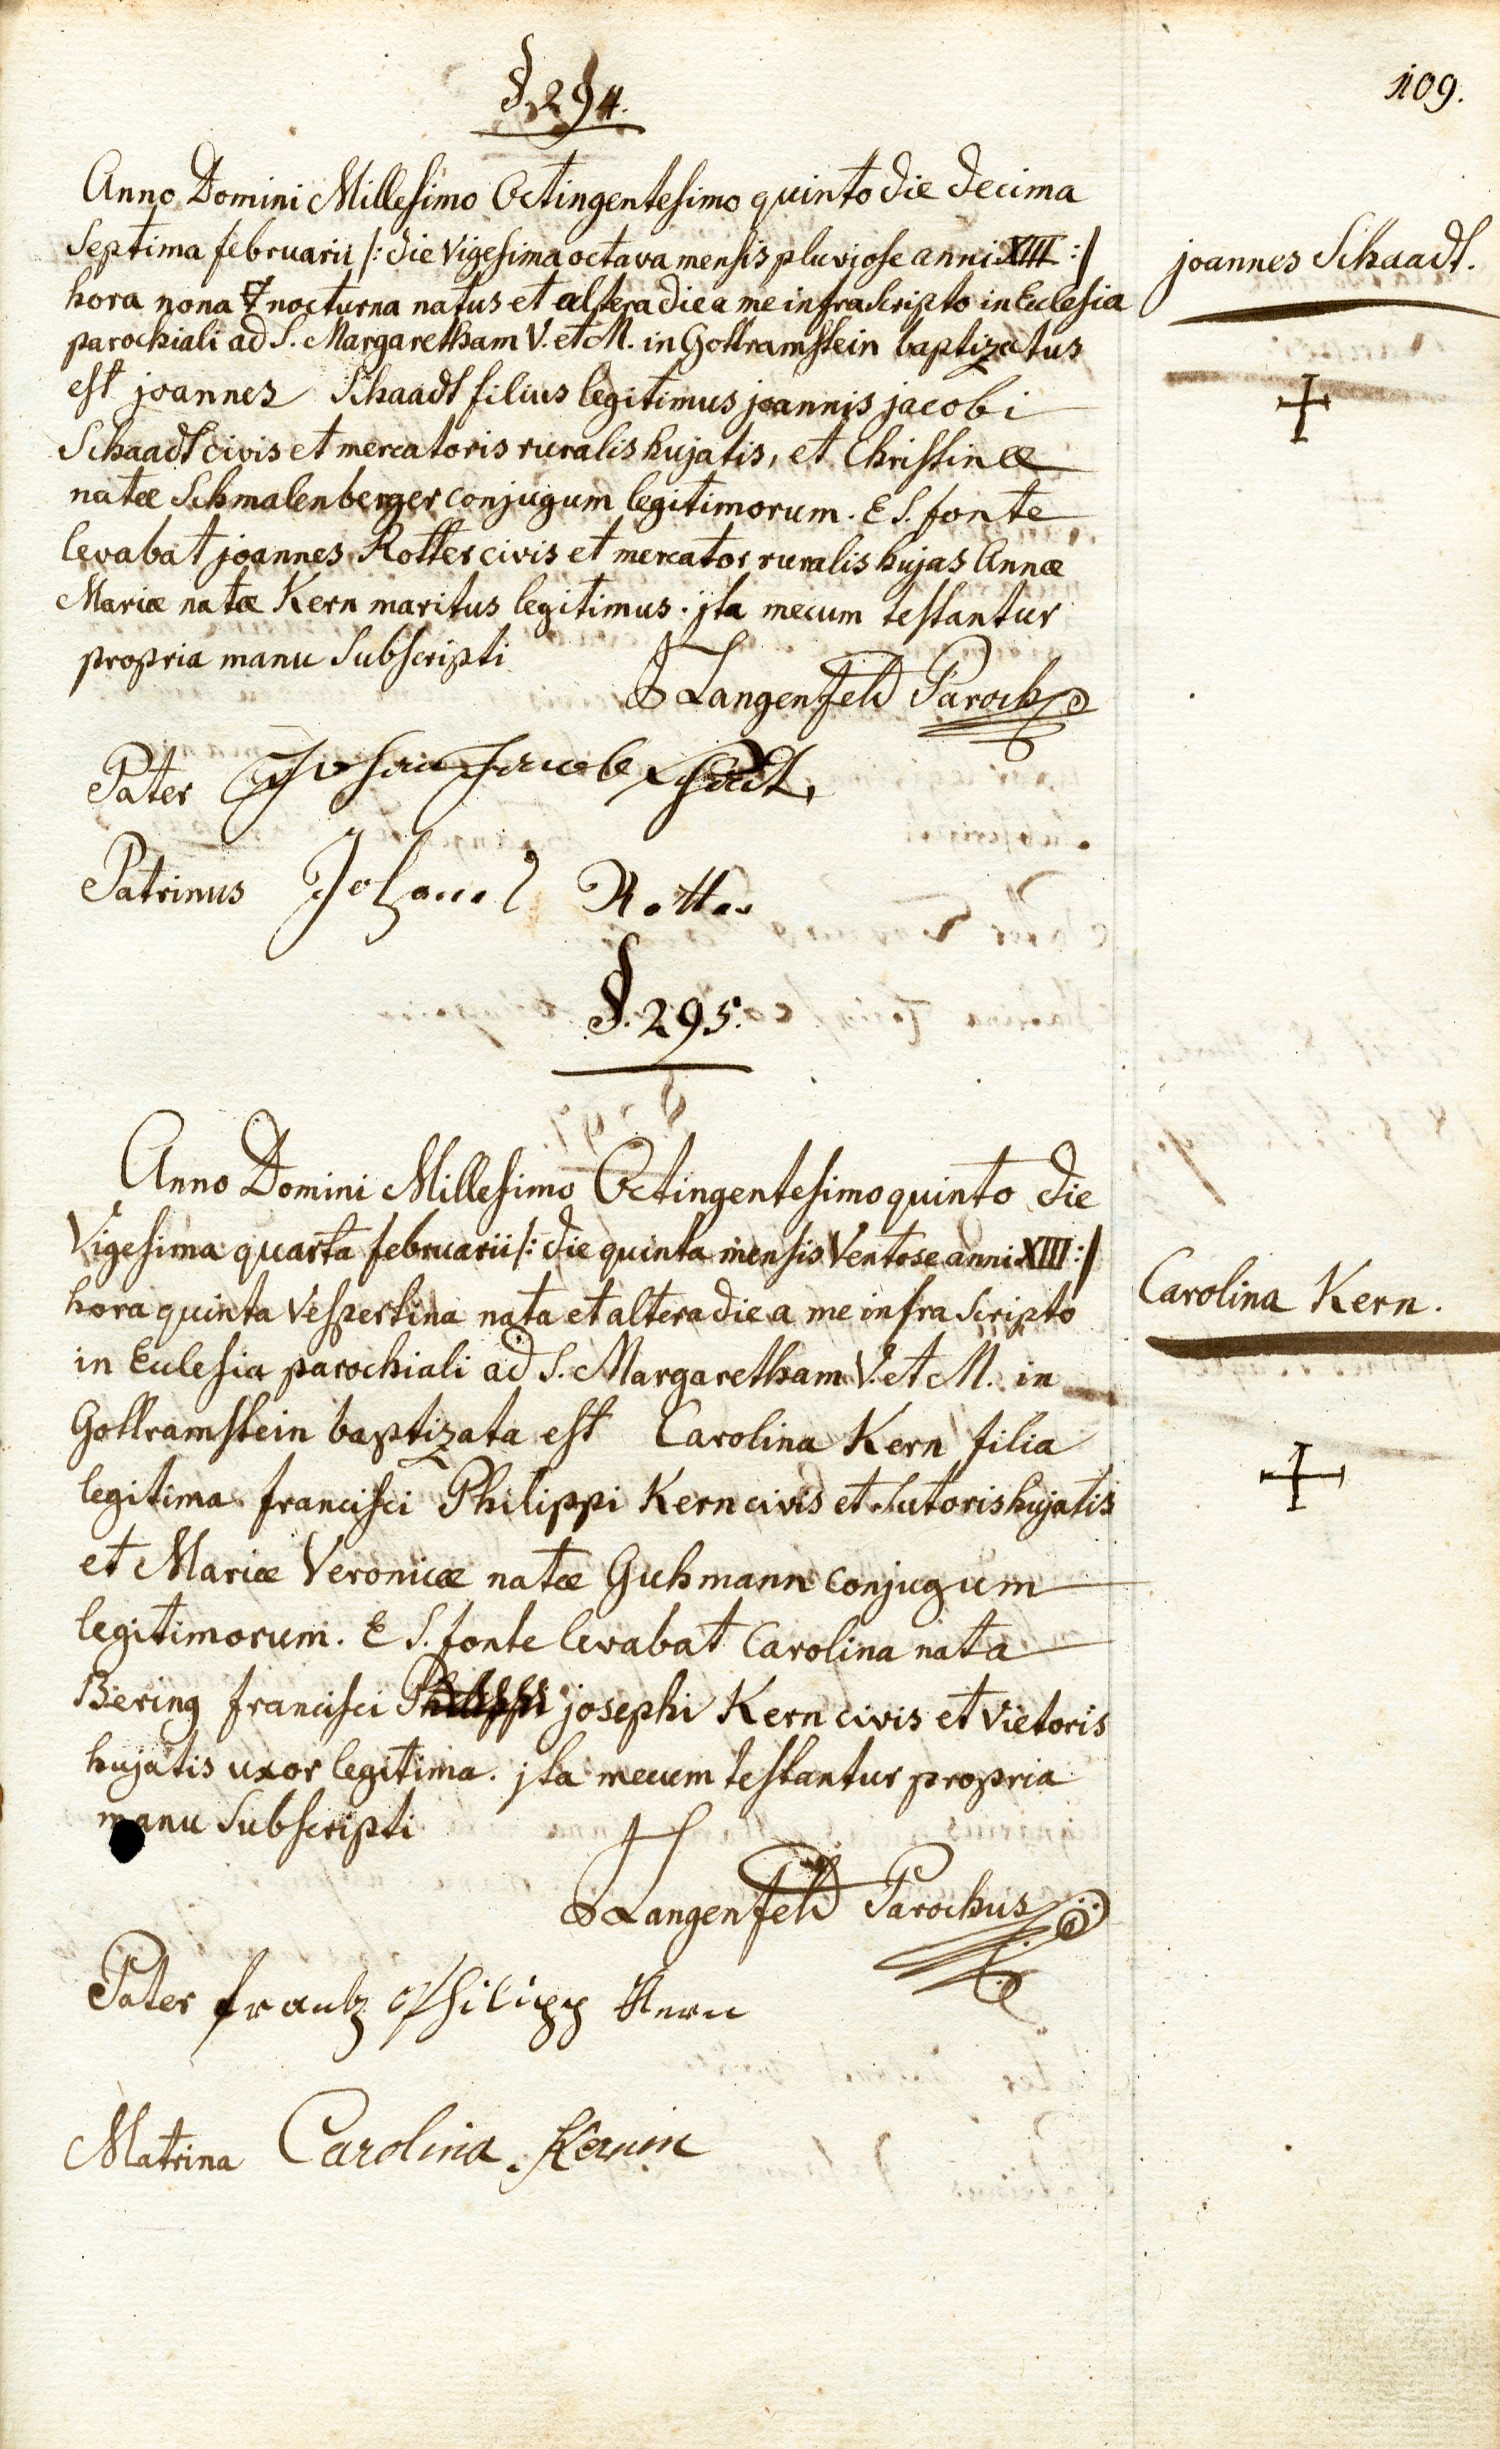 109.
§. 294.
Anno Domini Millesimo Octingentesimo quinto die decima
Septima februarii /: die Vigesima octava mensis pluviose anni XIII :/
joannes Schaadt.
hora nona nocturna natus et altera die a me infra Scripto in Ecclesia
parochiali ad S. Margaretham V. et M. in Gottramstein baptizatus
est joannes Schaadt filius legitimus joannis jacobi
Schaadt civis et mercatoris ruralis hujatis, et Christinæ
natæ Schmalenberger conjugum legitimorum. E S. fonte
levabat joannes Rotter civis et mercator ruralis hujas Annæ
Mariæ natæ Kern maritus legitimus. jta mecum testantur
propria manu Subscripti
Langenfeld Paroch
Pater Johan Jacob Schadt,
Patrinus Johannes Rotter
§. 295.
Anno Domini Millesimo Octingentesimo quinto die
Vigesima quarta februarii /: die quinta mensis Ventose anni XIII :/
Carolina Kern.
hora quinta Vespertina nata et altera die a me infra Scripto
in Ecclesia parochiali ad S. Margaretham V. et M. in
Gottramstein baptizata est Carolina Kern filia
legitima francisci Philippi Kern civis et Sutoris hujatis
et Mariæ Veronicæ natæ Guhmann conjugum
legitimorum. E S. fonte levabat Carolina nata
Bering francisci Philippi josephi Kern civis et Vietoris
hujatis uxor legitima. jta mecum testantur propria
manu Subscripti
Langenfeld Parochus
Pater frantz Philipp Kern
Matrina Carolina Kernin